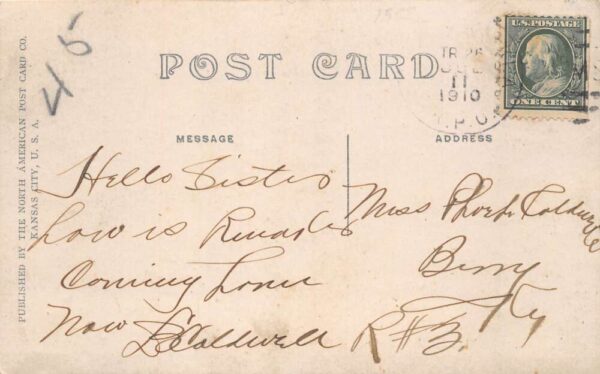 45
PUBLISHED BY THE NORTH AMERICAN POST CARD CO.
KANSAS CITY, U. S. A.
POST CARD
TR 26
JUL
11
1910
R.P.O.
U.S. POSTAGE
ONE CENT
MESSAGE
Hello Sister
how is
Coming home
now Caldwell
ADDRESS
Miss Phoebe Caldwell
Berry
Ky
R # 3.